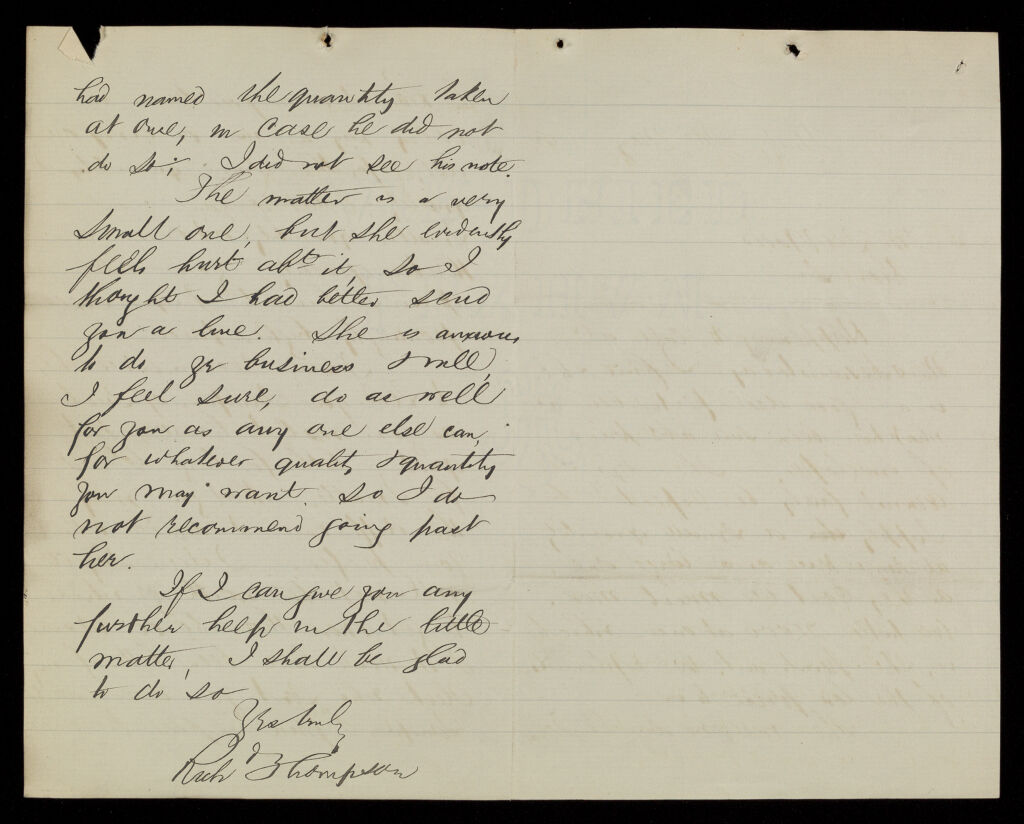 had named the quantity taken
at one, in case he did not
do so; I did not see his note.
The matter is a very
small one, but she evidently
feels hurt abt it, so I
thought I had better send
you a line. She is anxious
to do yr business & will,
I feel sure, do as well
for you as any one else can,
for whatever quality & quantity
you may want. so I do
not recommend going past
her.
If I can give you any
further help in the little
matter, I shall be glad
to do so
Yrs truly
Richd Thompson